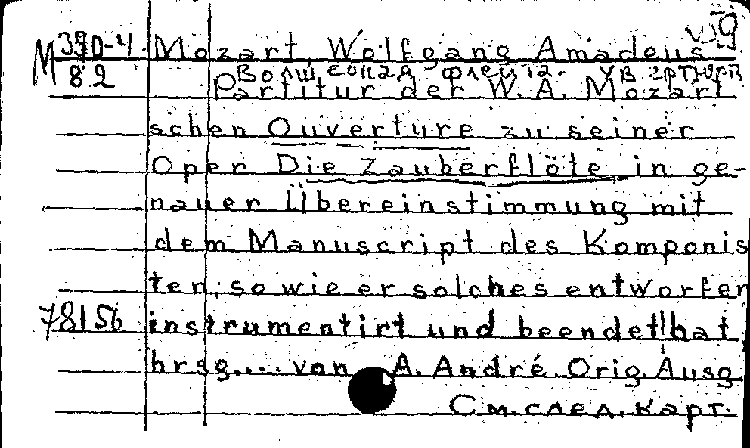 M 370-4
82
Mozart, Wolfgang Amadeus
Волшебная флейта.
Partitur der W. A. Mozart
schen Ouverture zu seiner
Oper Die Zauberflöte in ge-
nauer Übereinstimmung mit
dem Manuscript des Komponis
ten, so wie er solches entworfen
78156
instrumentirt und beendet hat
hrsg.... von A. André. Orig. Ausg
См. след. карт.